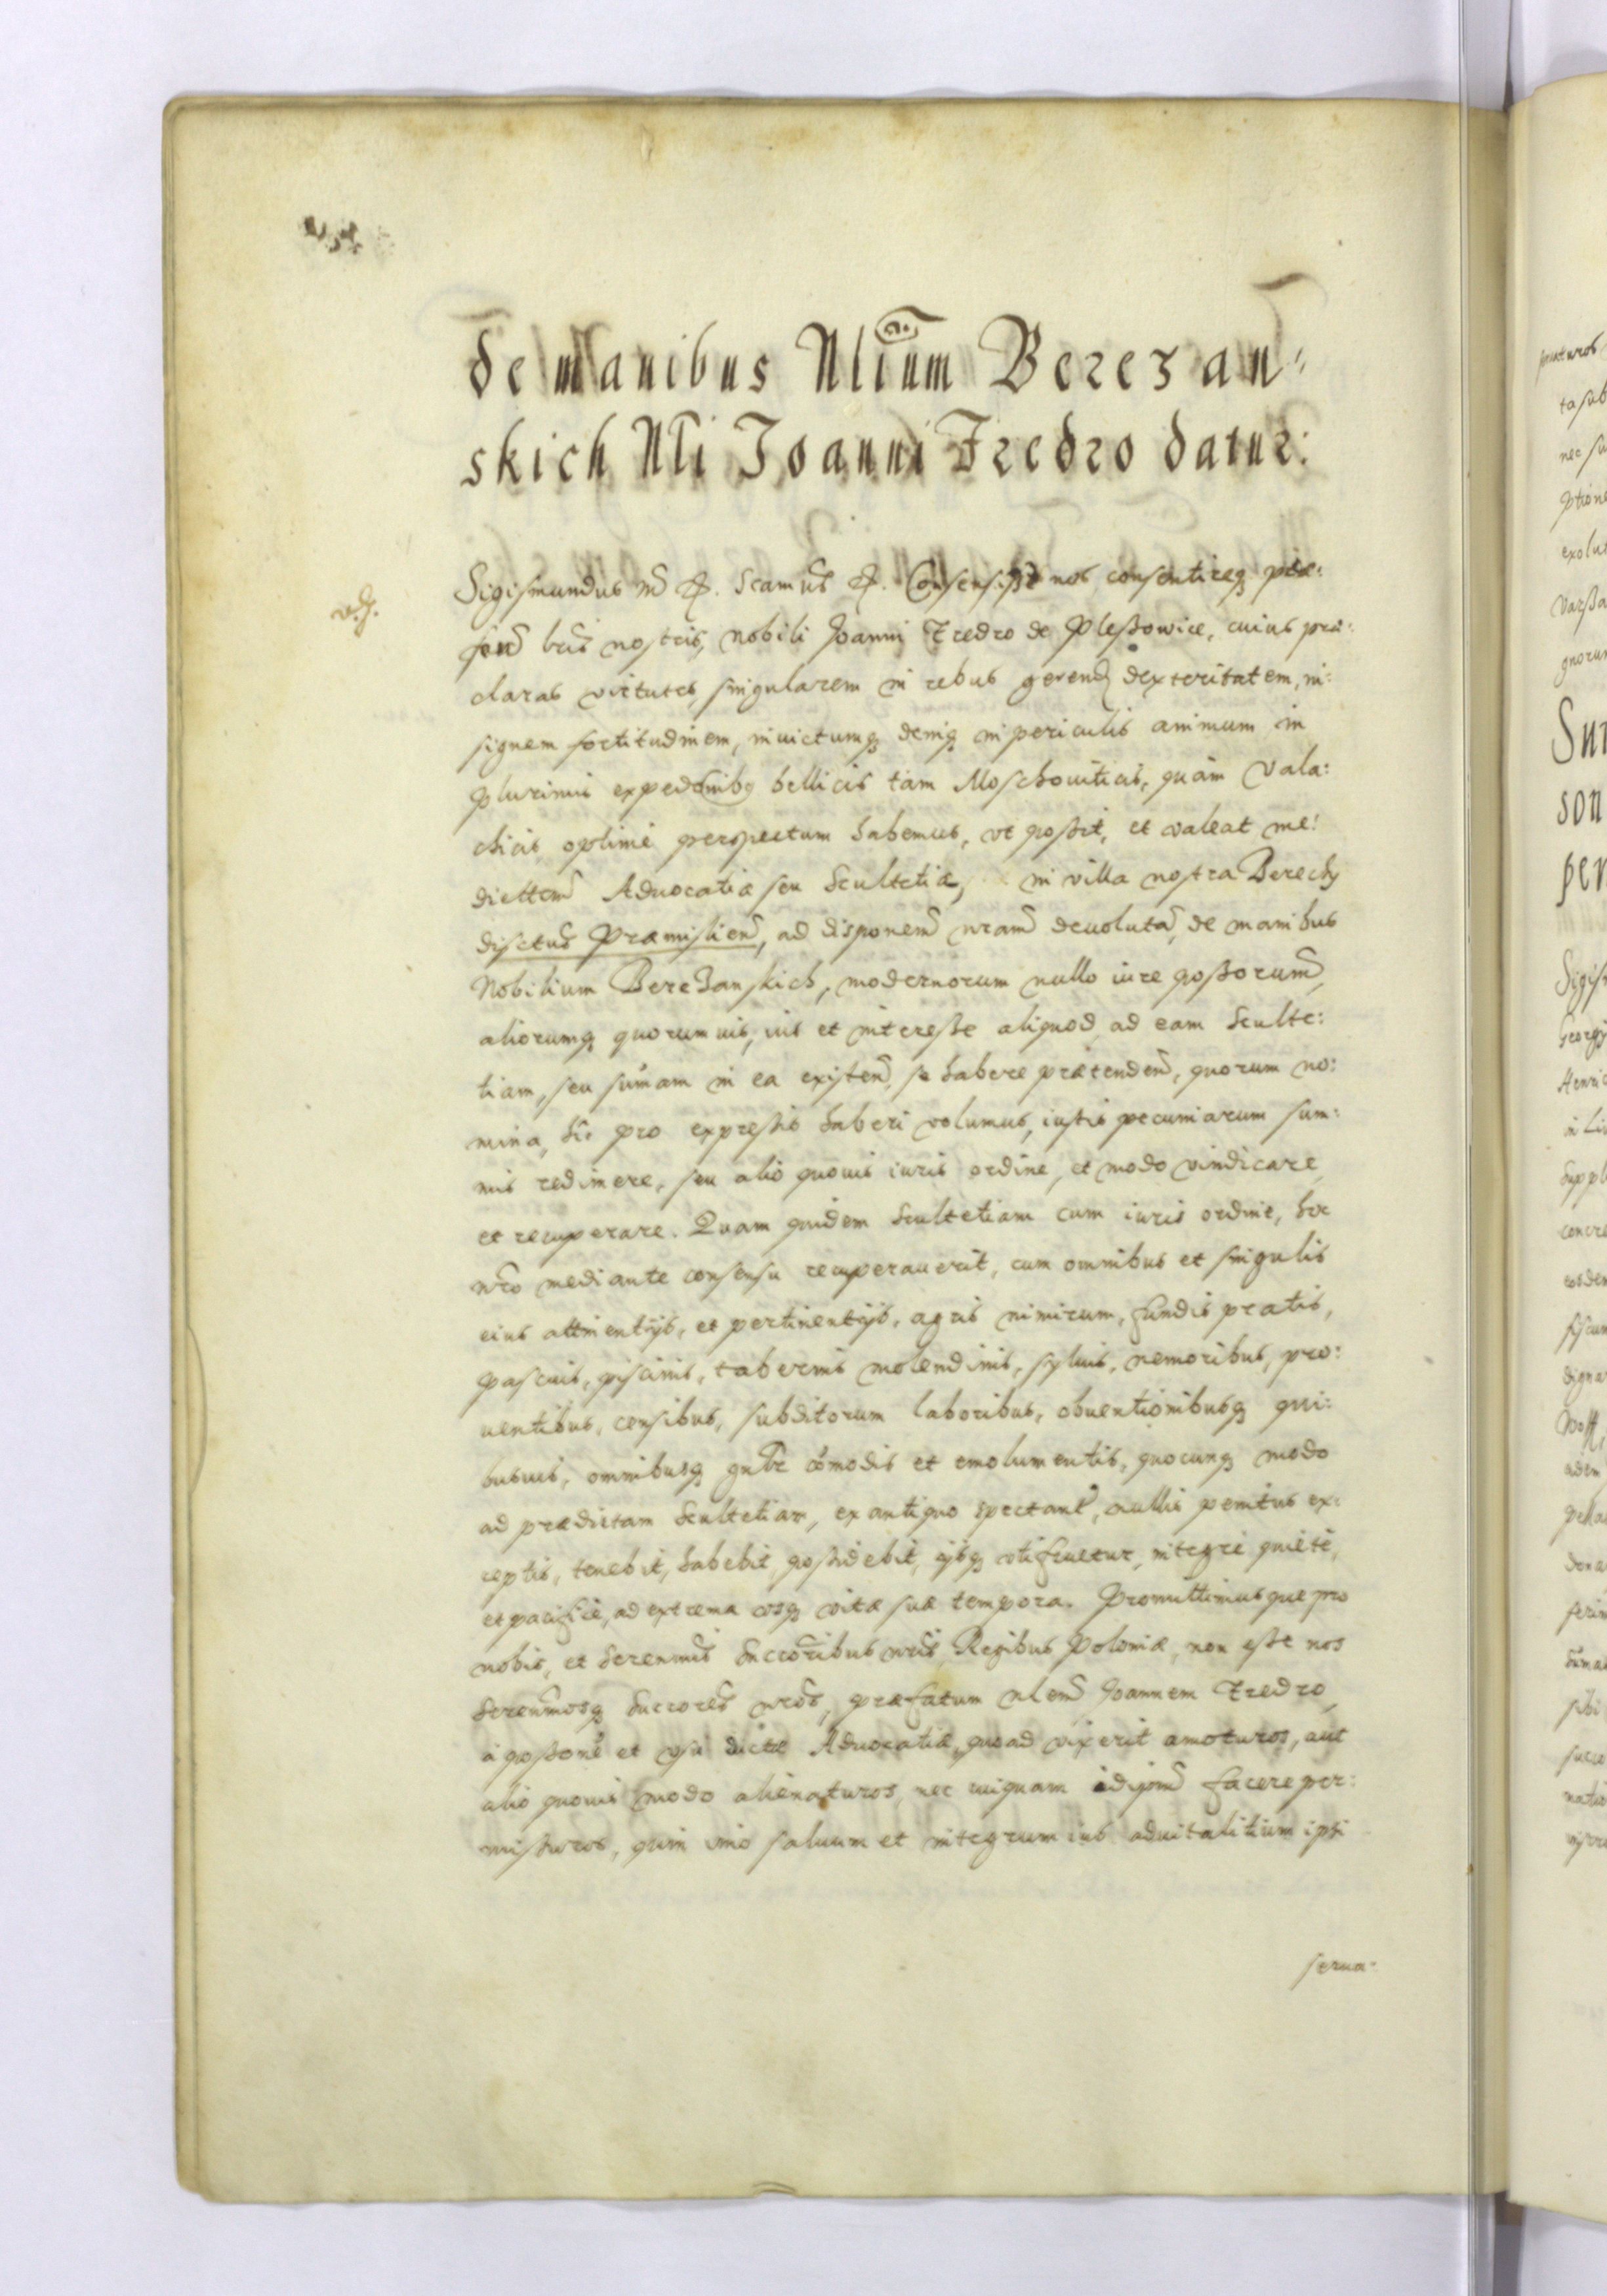 de manibus Nlium Berezan-
skich Nli Joanni Fredro datur:
Sigismundus 3us etc. Scamus etc. Consensisse nos, consentireq; præ:
sentibus lris nostris, nobili Joanni Fredro de Pleszowice, cuius præ:
claras virtutes, singularem in rebus gerend dexteritatem, in:
signem fortitudinem, inuictumq; deniq; in periculis animum in
plurimis expedonibq bellicis tam Moschouiticis, quàm Vala:
chicis optimè perspectum habemus, vt possit, et valeat me:
dietatem Aduocatiæ seu Scultetiæ, in villa nostra Berechy
disctus Præmislien, ad disponem nram deuoluta, de manibus
Nobilium Berezanskich, modernorum nullo iure possorum,
aliorumq; quorumuis, ius et interesse aliquod, ad eam Sculte:
tiam, seu sumam in ea existen, se habere prætenden, quorum no:
mina, hic pro expressis haberi volumus, iustis pecuniarum sum:
mis redimere, seu alio quouis iuris ordine, et modo vindicare,
et recuperare. Quam quidem Scultetiam cum iuris ordine, hoc
nro mediante consensu recuperauerit, cum omnibus et singulis
eius attinentijs, et pertinentijs, agris nimirum, fundis pratis,
pascuis, piscinis, tabernis molendinis, syluis, nemoribus, pro:
uentibus, censibus, subditorum laboribus, obuentionibusq; qui:
busuis, omnibusq; gnlr comodis et emolumentis, quocunq; modo
ad prædictam Scultetiam, ex antiquo spectant, nullis penitus ex:
ceptis, tenebit, habebit, possidebit, ijsq; vtifruetur, integrè quietè,
et pacificè, ad extrema vsq; vitæ suæ tempora. Promittimusque pro
nobis, et Serenmis Succoribus nris, Regibus Poloniæ, non esse nos
Serenmosq; Succores nros, præfatum nlem Joannem Fredro,
à possone et vsu dictæ Aduocatiæ, quoad vixerit amoturos, aut
alio quouis modo alienaturos, nec cuiquam id ipm facere per:
missuros, quin imo saluum et integrum ius aduitalitium ipsi
serua-